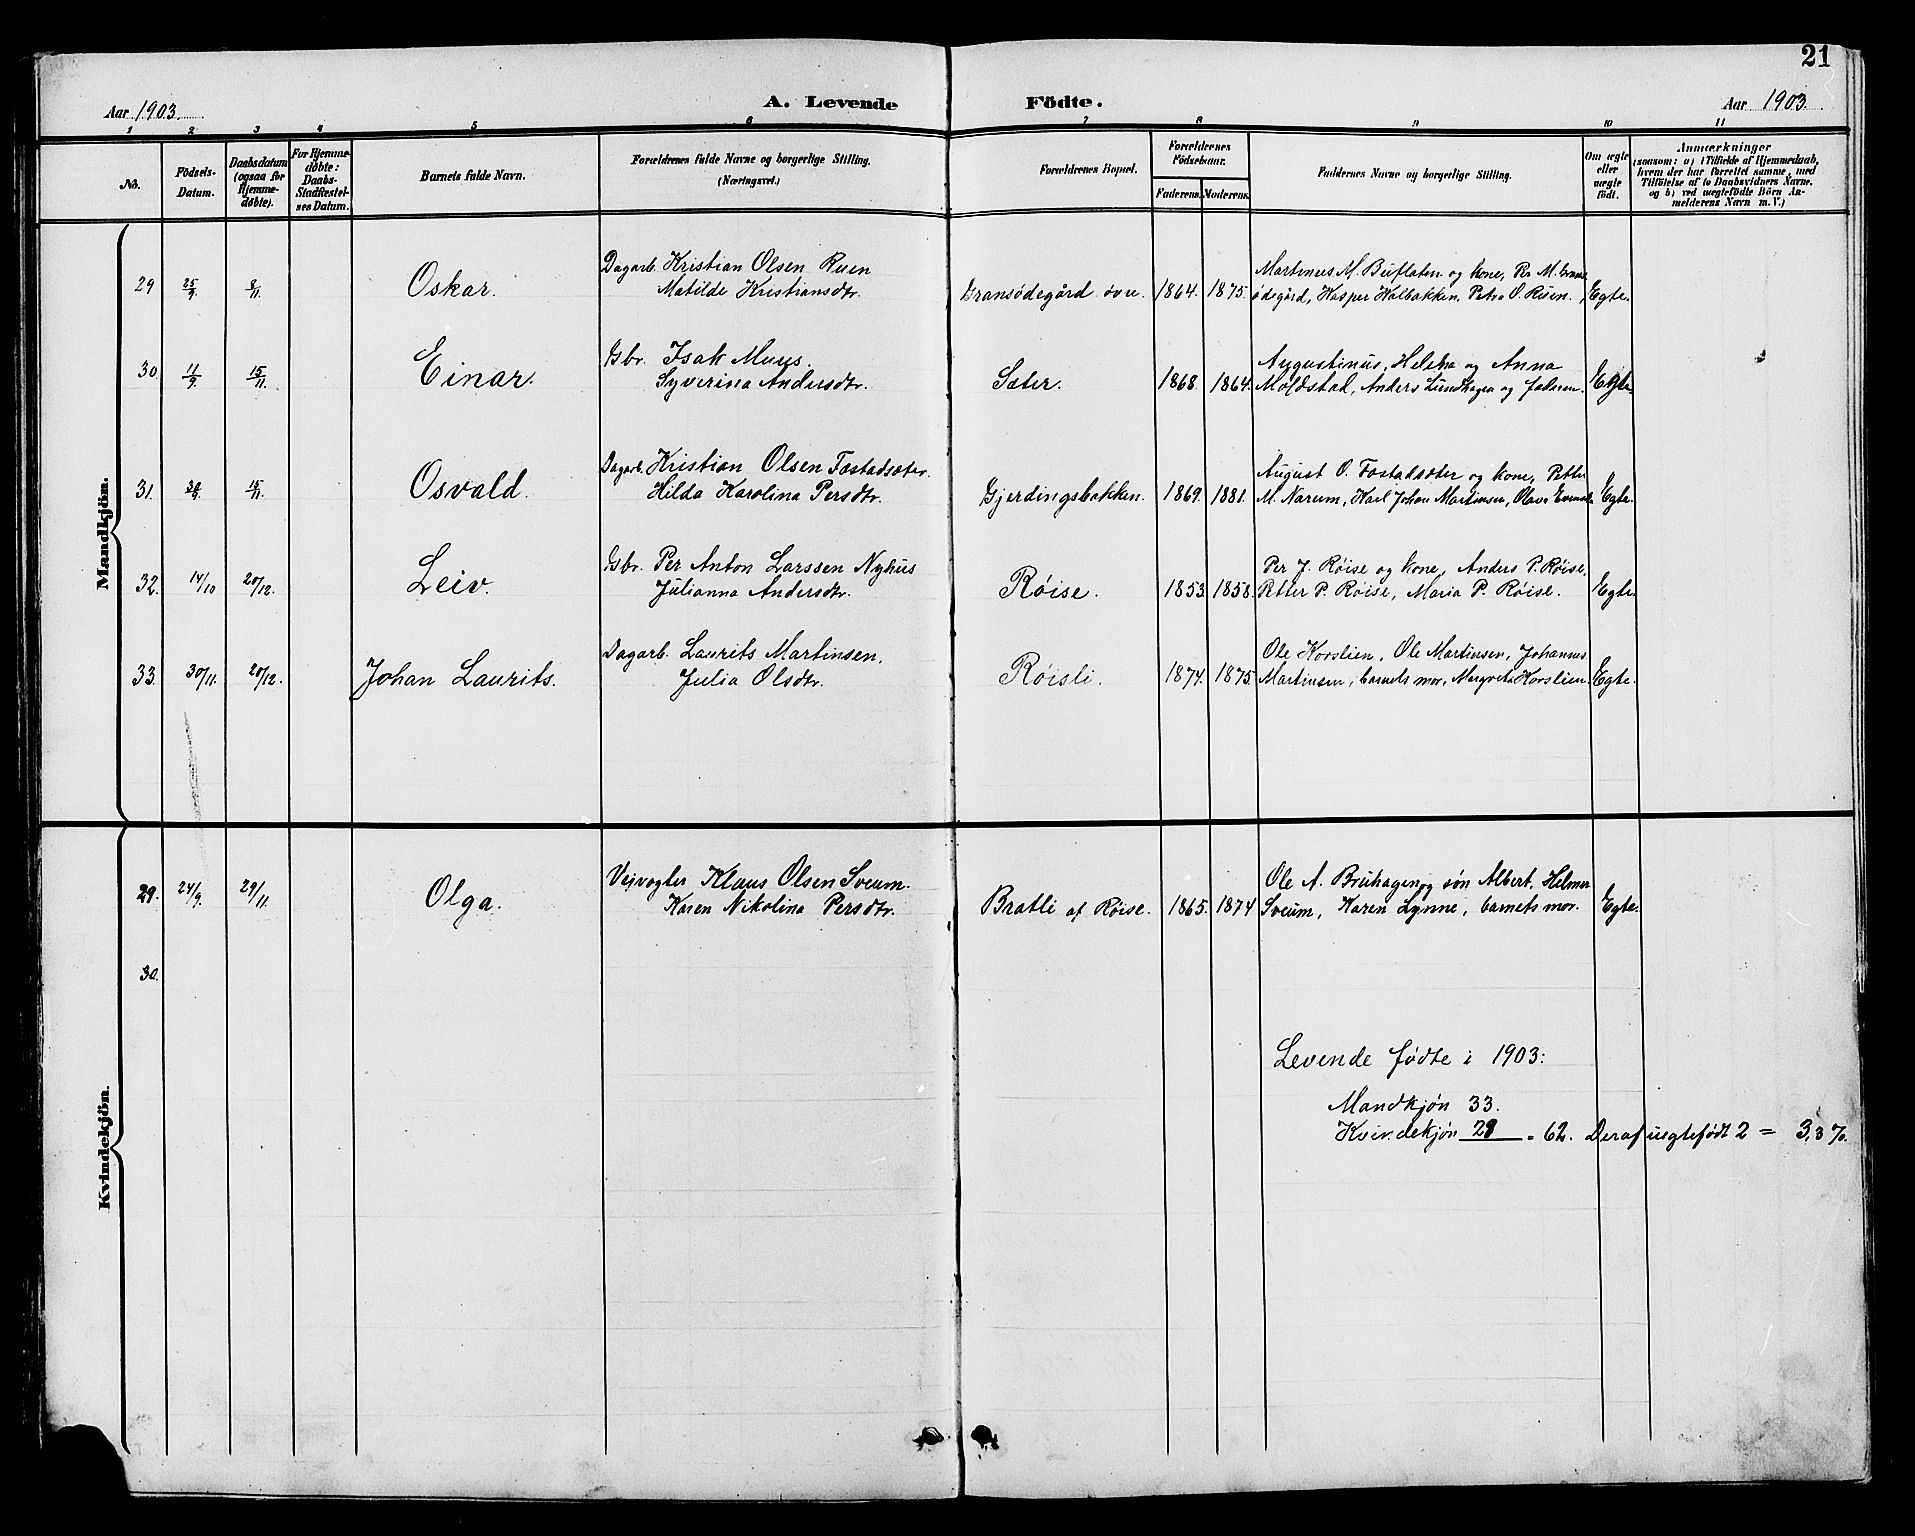 21
Aar 1903.
A. Levende
Födte.
Aar 1903.
1 2 3 4 5 6 7 8 9 10 11
No.
Födsels-
Datum.
Daabsdatum
(ogsaa for
Hjemme-
døbte).
For Hjemme-
døbte:
Daabs-
Stadfæstel-
ses Datum.
Barnets fulde Navn.
Forældrenes fulde Navne og borgerlige Stilling.
(Næringsvei.)
Forældrenes Bopæl.
Forældrenes
Födselsaar.
Faderens.
Moderens.
Faddernes Navne og borgerlige Stilling.
Om ægte
eller
uægte
født.
Anmærkninger
(saasom: a) i Tilfælde af Hjemmedaab,
hvem der har forrettet samme, med
Tilføielse af to Daabsvidners Navne,
og b) ved uægtefødte Börn An-
melderens Navn m. V.)
Mandkjön.
29 25/9 8/11 Oskar. Dagarb. Kristian Olsen Ruen
Matilde Kristiansdtr. Gransødegård øvre. 1864. 1875. Martinus M. Buflaten og kone,
ødegård, Kasper Halbakken, Petra O. Ruen. Egte.
30. 11/9 15/11 Einar. Gbr. Isak Muus.
Syverina Andersdtr. Sæter. 1868. 1864. Augustinus, Helena og Anna
Moldstad, Anders Lundhagen og faderen. Egte.
31. 15/11 Osvald. Dagarb. Kristian Olsen Fostadsæter.
Hilda Karolina Persdtr. Gjerdingsbakken. 1869. 1881. August O. Fostadsæter og kone, Petter
M. Narum, Karl Johan Martinsen, Olava Egte.
32. 14/10 20/12. Leiv. Gbr. Per Anton Larssen Nyhus
Julianna Andersdtr. Røise. 1853 1858. Per J. Røise og kone, Anders P. Røise,
Petter P. Røise, Maria P. Røise. Egte.
33. 30/11. 20/12. Johan Laurits. Dagarb. Laurits Martinsen.
Julia Olsdtr. Røisli. 1874. 1875. Ole Korslien, Ole Martinsen, Johannes
Martinsen, barnets mor, Margreta Korslien. Egte.
Kvindekjön.
29. 24/9 29/11. Olga. Veivogter Klaus Olsen Sveum.
Karen Nikolina Persdtr. Bratli af Røise. 1865. 1874 Ole A. Bruhagen og søn Albert, Helmer
Sveum, Karen Lynne, barnets mor. Egte.
30.
Levende fødte i 1903:
Mandkjøn 33.
Kvindekjøn 29 = 62. Deraf uegtefødt 2 = 3,3 %.